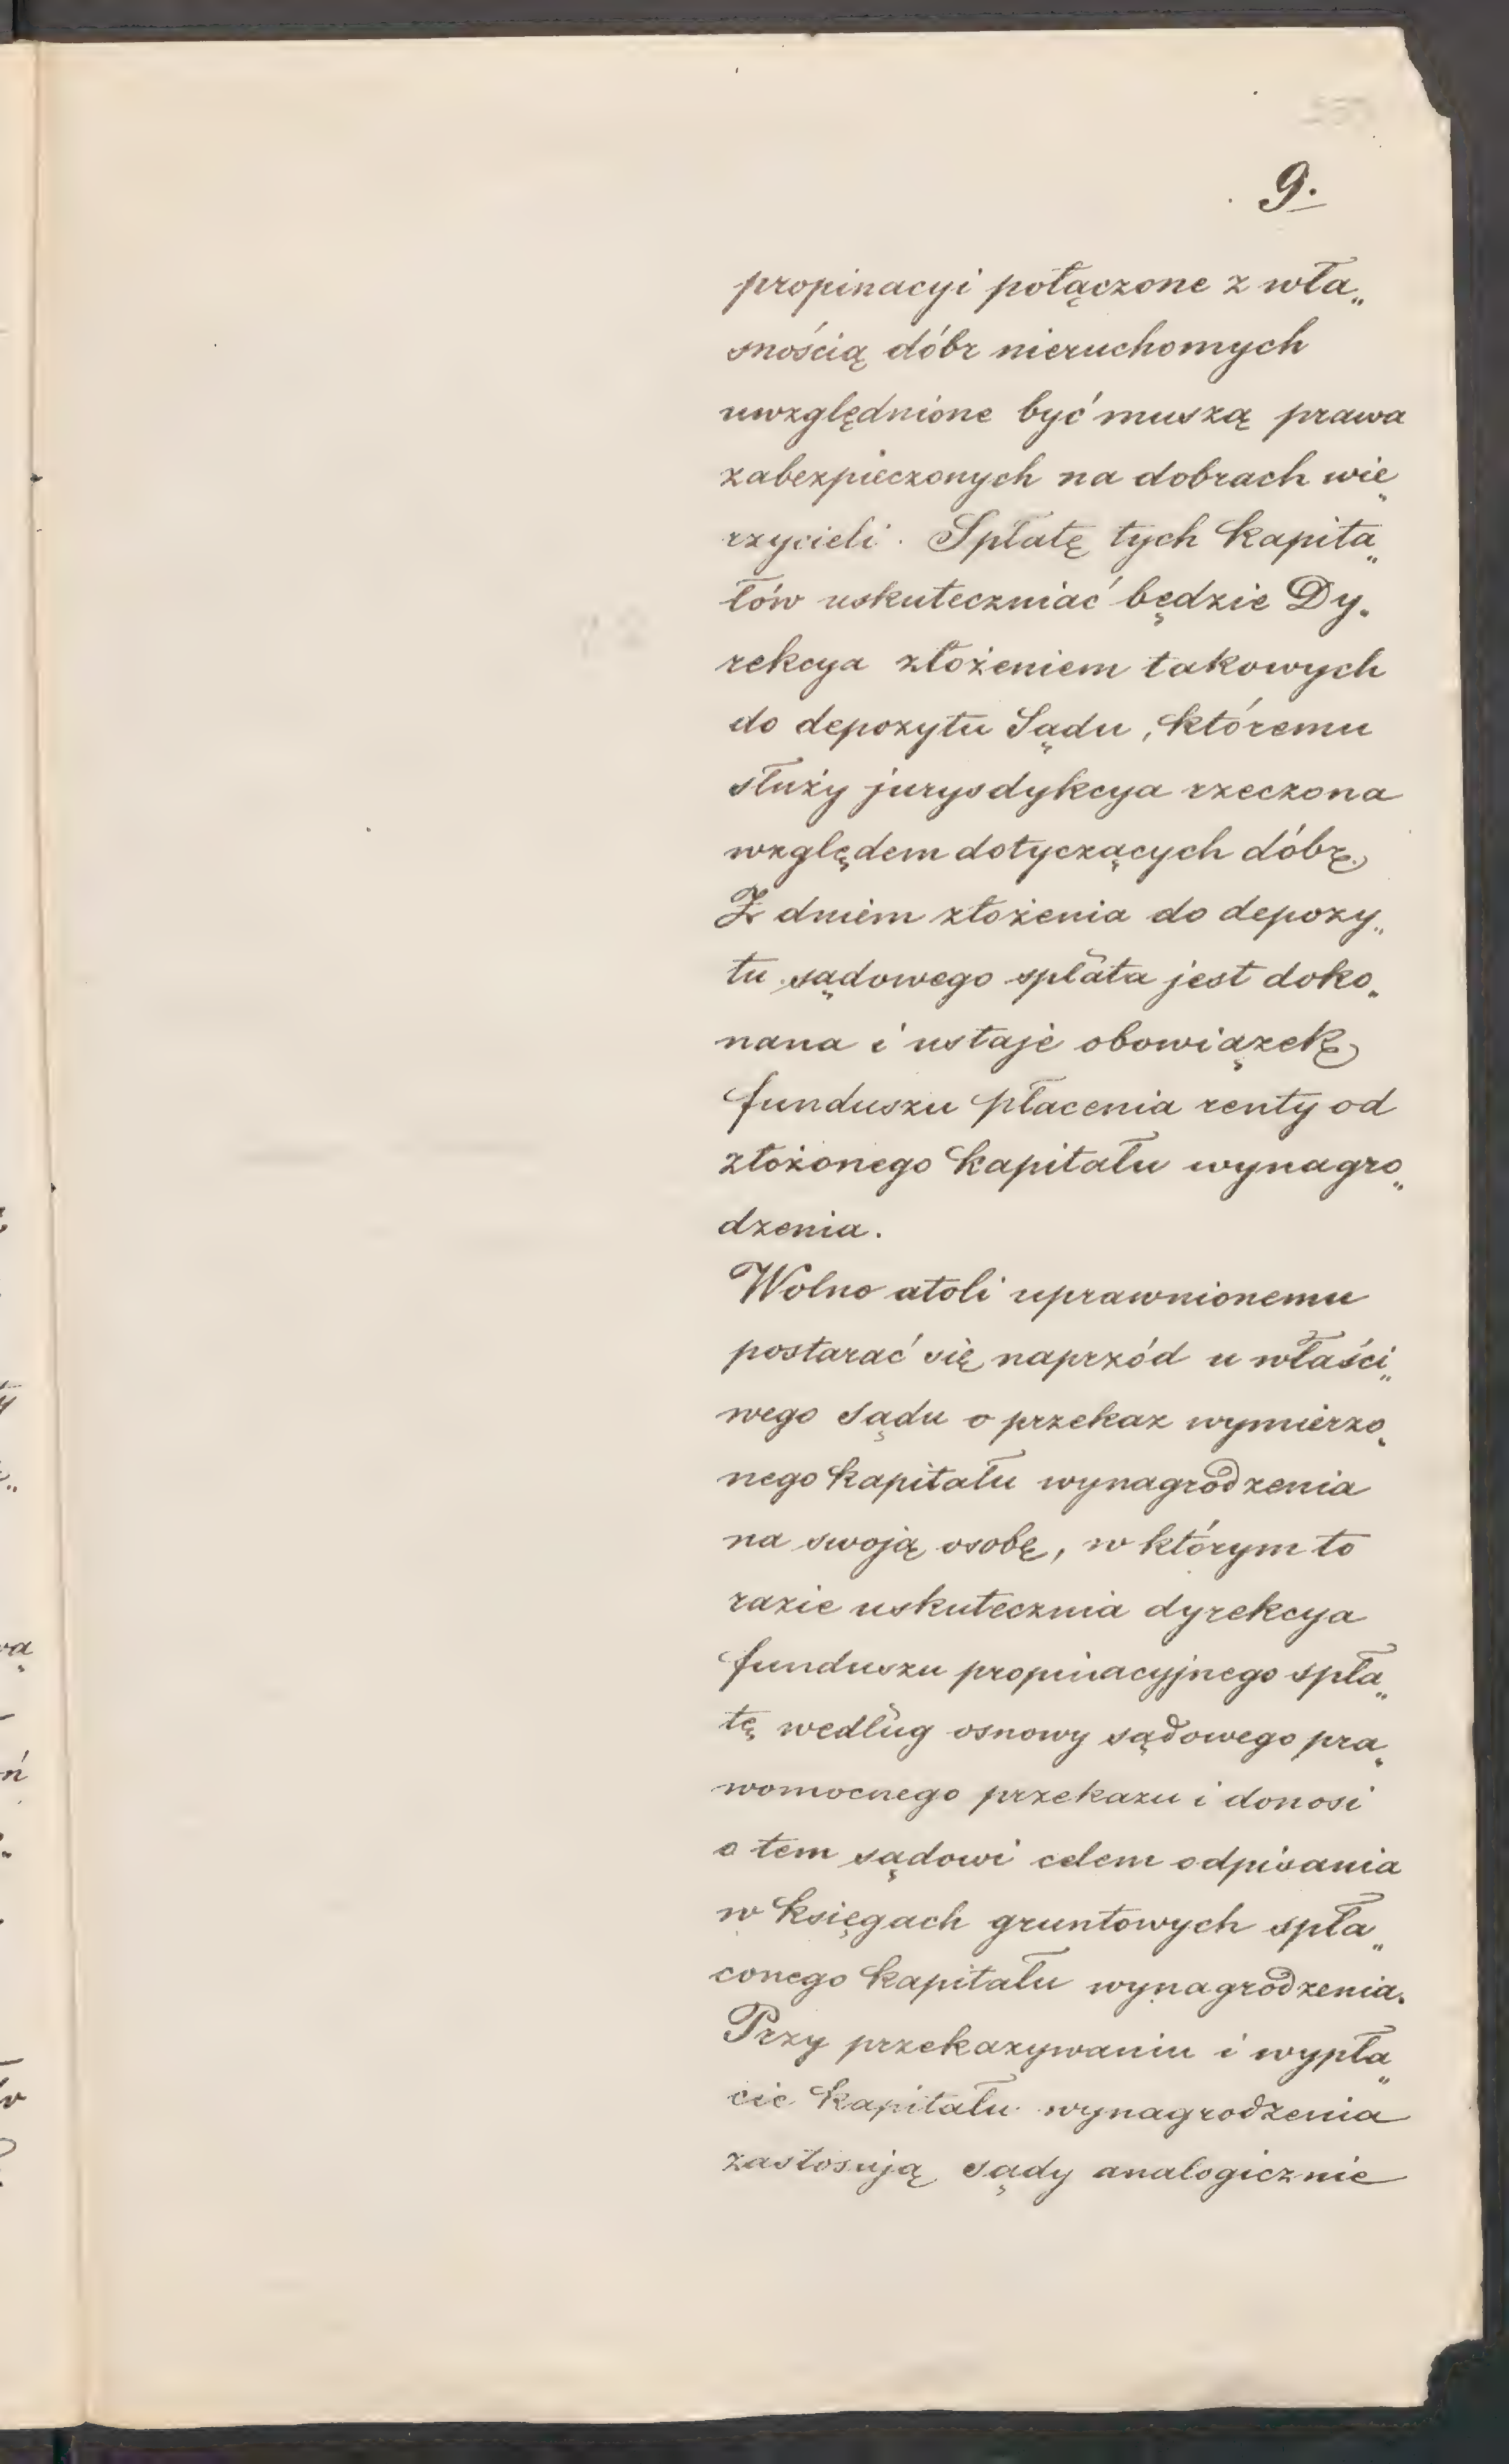 9.
propinacyi połączone z wła„
snością dóbr nieruchomych
uwzględnione być muszą prawa
zabezpieczonych na dobrach wie„
rzycieli. Spłatę tych kapita„
łów uskuteczniać będzie Dy„
rekcya złożeniem takowych
do depozytu Sądu, któremu
służy jurysdykcya rzeczona
względem dotyczących dóbr.
Z dniem złożenia do depozy„
tu sądowego spłata jest doko„
nana i ustaje obowiązek
funduszu płacenia renty od
złożonego kapitału wynagro„
dzenia.
Wolno atoli uprawnionemu
postarać się naprzód u właści„
wego sądu o przekaz wymierzo„
nego kapitału wynagrodzenia
na swoją osobę, w którym to
razie uskutecznia dyrekcya
funduszu propinacyjnego spła„
tę według osnowy sądowego pra„
womocnego przekazu i donosi
o tem sądowi celem odpisania
w księgach gruntowych spła„
conego kapitału wynagrodzenia.
Przy przekazywaniu i wypła„
cie kapitału wynagrodzenia
zastosują sądy analogicznie